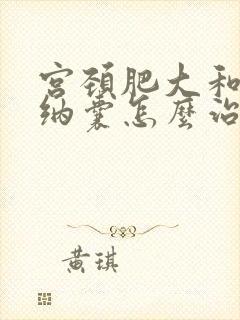 宫颈肥大和
纳囊怎麼治
黄琪